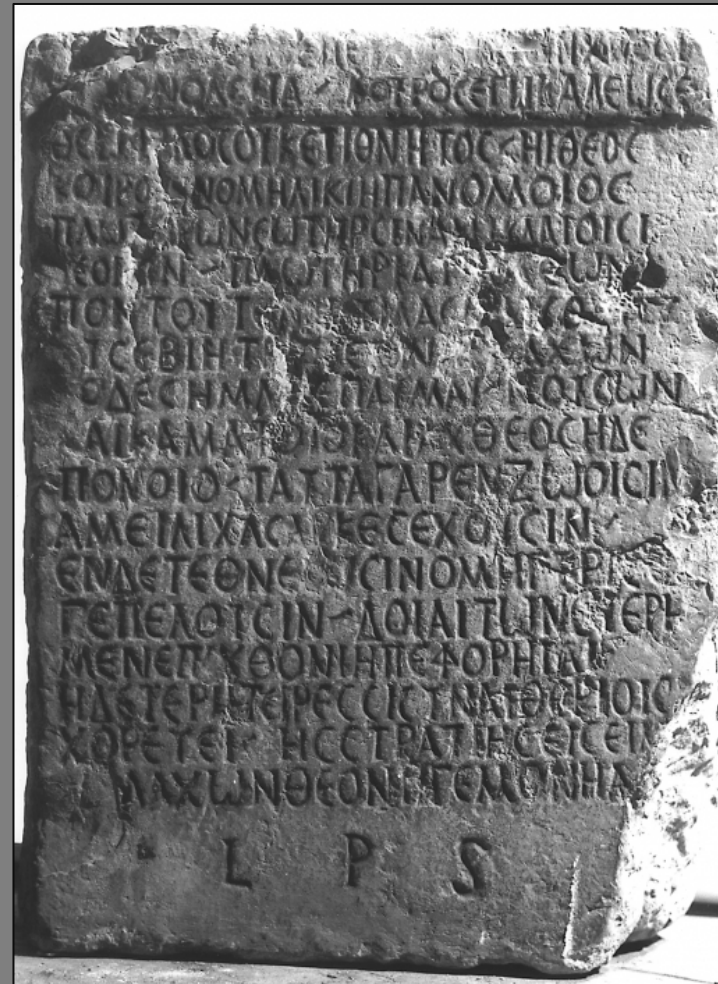 ΚΟΥΡΟϹ ΕΓΩ ΚΑΛΕΩ ϹΕ
ΘΕΩ ΦΙΛΟϹ ΟΥΚΕΤΙ ΘΝΗΤΟϹ ΗΙΘΕΟϹ
ΚΟΥΡΟΙϹΙΝ ΟΜΗΛΙΚΙΗ ΠΑΝΟΜΟΙΟϹ
ΠΛΩΤΗΡΩΝ ϹΩΤΗΡϹΙΝ ΑΜΥΚΛΑΙΟΙϹΙ
ΘΕΟΙϹΙΝ ΠΛΩΤΗΡ ΚΑΥΤΟϹ ΕΩΝ
ΠΟΝΤΟΥ
ΕΥϹΕΒΙΗ ΤΡΟΦΕΩΝ ΔΕ ΛΑΧΩΝ
ΤΟΔΕ ϹΗΜΑ ΠΕΠΑΥΜΑΙ ΝΟΥϹΩΝ
ΚΑΙ ΚΑΜΑΤΟΙΟ ΚΑΙ ΑΧΘΕΟϹ ΗΔΕ
ΠΟΝΟΙΟ ΤΑΥΤΑ ΓΑΡ ΕΝ ΖΩΟΙϹΙΝ
ΑΜΕΙΛΙΧΑ ϹΑΡΚΕϹ ΕΧΟΥϹΙΝ
ΕΝ ΔΕ ΤΕΘΝΕΙΟΙϹΙΝ ΟΜΗΓΥΡΙ
ΓΕ ΠΕΛΟΥϹΙΝ ΔΟΙΑΙ ΤΩΝ ΕΤΕΡΗ
ΜΕΝ ΕΠΙΧΘΟΝΙΗ ΠΕΦΟΡΗΤΑΙ
Η Δ ΕΤΕΡΗ ΤΕΙΡΕϹϹΙ ϹΥΝ ΑΙΘΕΡΙΟΙϹΙ
ΧΟΡΕΥΕΙ ΗϹ ϹΤΡΑΤΙΗϹ ΕΙϹ ΕΙΜΙ
ΛΑΧΩΝ ΘΕΟΝ ΗΓΕΜΟΝΗΑ
L P S